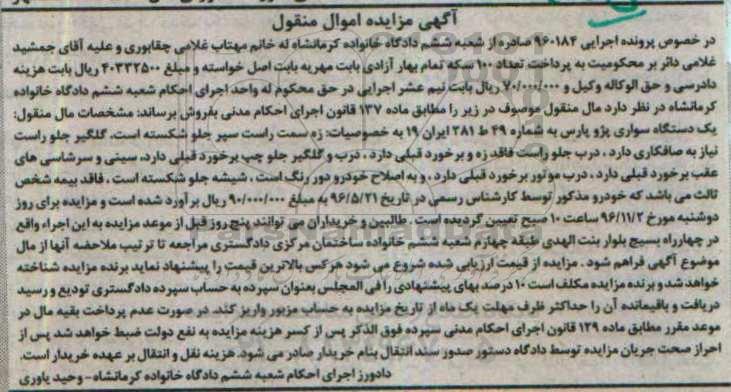 آگهی مزایده اموال منقول
در خصوص پرونده اجرایی ۹۶۰۱۸۴ صادره از شعبه ششم دادگاه خانواده کرمانشاه له خانم مهتاب غلامی چقابوری و علیه آقای جمشید
غلامی دائر بر محکومیت به پرداخت تعداد ۱۰۰ سکه تمام بهار آزادی بابت مهریه بابت اصل خواسته و مبلغ ۴۰۳۳۲۵۰۰ ریال بابت هزینه
دادرسی و حق الوکاله وکیل و ۷۰/۰۰۰/۰۰۰ ریال بابت نیم عشر اجرایی در حق محکوم له واحد اجرای احکام شعبه ششم دادگاه خانواده
کرمانشاه در نظر دارد مال منقول موصوف در زیر را مطابق ماده ۱۳۷ قانون اجرای احکام مدنی بفروش برساند: مشخصات مال منقول:
یک دستگاه سواری پژو پارس به شماره ۴۹ ط ۲۸۱ ایران ۱۹ به خصوصیات: زه سمت راست سپر جلو شکسته است. گلگیر جلو راست
نیاز به صافکاری دارد ، درب جلو راست فاقد زه و برخورد قبلی دارد ، درب و گلگیر جلو چپ برخورد قبلی دارد، سینی و سرشاسی های
عقب برخورد قبلی دارد ، درب موتور برخورد قبلی دارد ، و به اصلاح خودرو دور رنگ است ، شیشه جلو شکسته است ، فاقد بیمه شخص
ثالث می باشد که خودرو مذکور توسط کارشناس رسمی در تاریخ ۹۶/۵/۲۱ به مبلغ ۹۰/۰۰۰/۰۰۰ ریال بر آورد شده است و مزایده برای روز
دوشنبه مورخ ۹۶/۱۱/۲ ساعت ۱۰ صبح تعیین گردیده است . طالبین و خریداران می توانند پنج روز قبل از موعد مزایده به این اجراء واقع
در چهارراه بسیج بلوار بنت الهدی طبقه چهارم شعبه ششم خانواده ساختمان مرکزی دادگستری مراجعه تا ترتیب ملاحضه آنها از مال
موضوع آگهی فراهم شود . مزایده از قیمت ارزیابی شده شروع می شود هرکس بالاترین قیمت را پیشنهاد نماید برنده مزایده شناخته
خواهد شد و برنده مزایده مکلف است ۱۰ درصد بهای پیشنهادی را فی المجلس بعنوان سپرده به حساب سپرده دادگستری تودیع و رسید
دریافت و باقیمانده آن را حداکثر ظرف مهلت یک ماه از تاریخ مزایده به حساب مزبور واریز کند. در صورت عدم پرداخت بقیه مال در
موعد مقرر مطابق ماده ۱۲۹ قانون اجرای احکام مدنی سپرده فوق الذکر پس از کسر هزینه مزایده به نفع دولت ضبط خواهد شد پس از
احراز صحت جریان مزایده توسط دادگاه دستور صدور سند انتقال بنام خریدار صادر می شود. هزینه نقل و انتقال بر عهده خریدار است.
دادورز اجرای احکام شعبه ششم دادگاه خانواده کرمانشاه- وحید یاوری